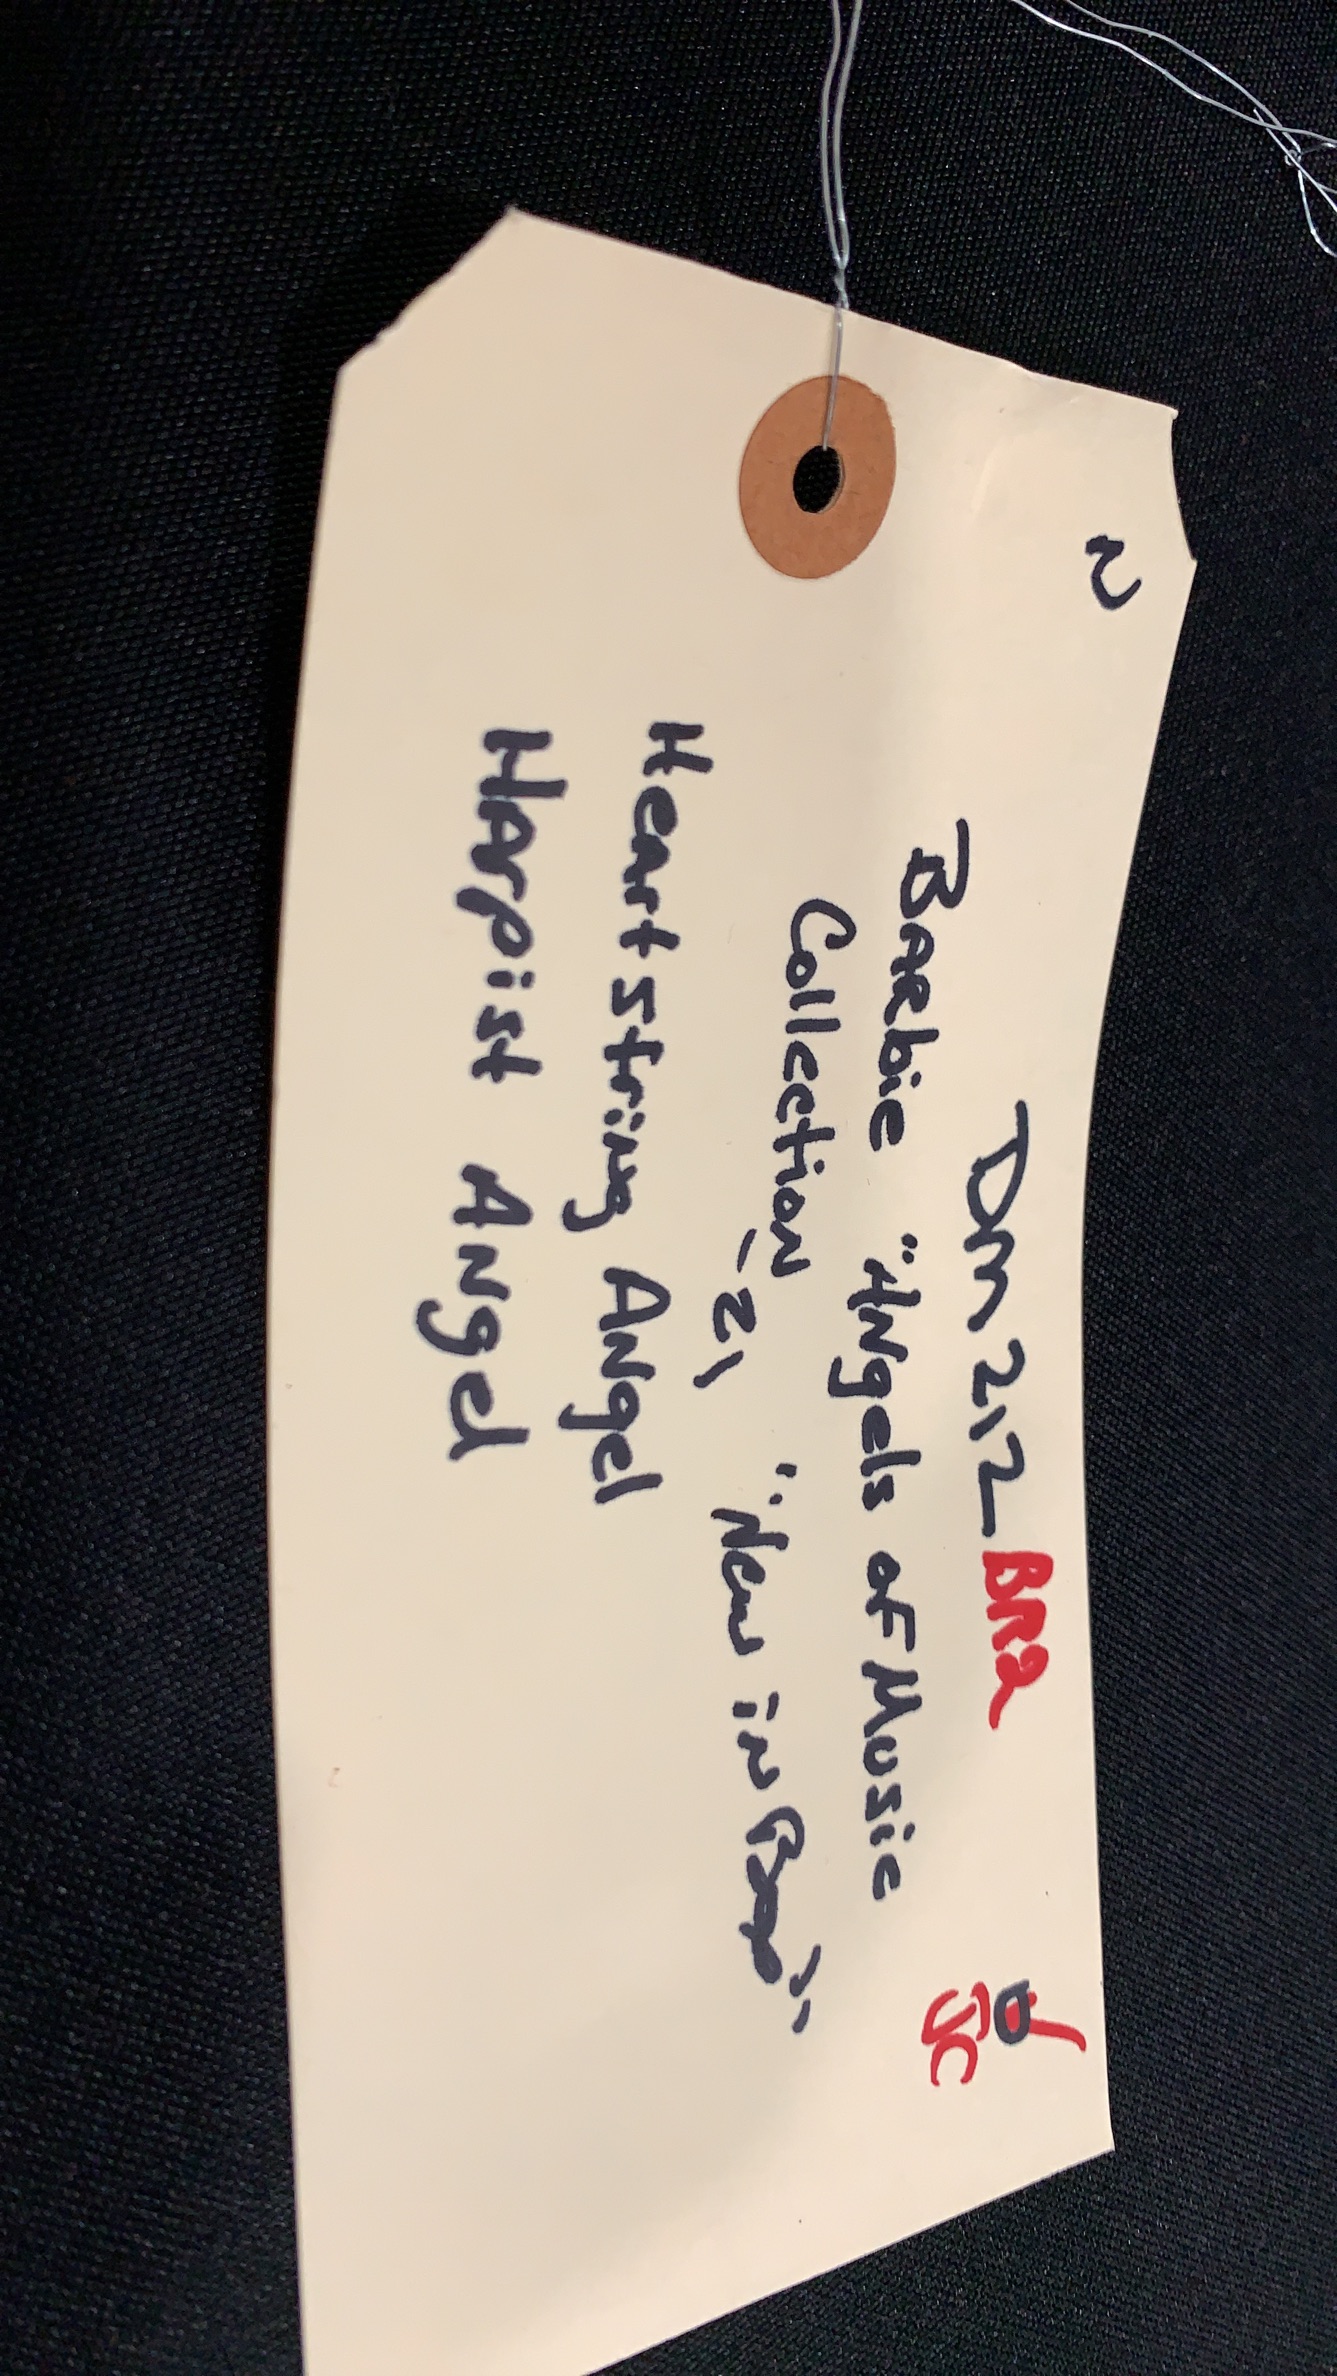 N
Dm 212 BR2
Barbie "Angels of Music
Collection "New in Box"
- 2)
Heartstring Angel
Harpist Angel
JC